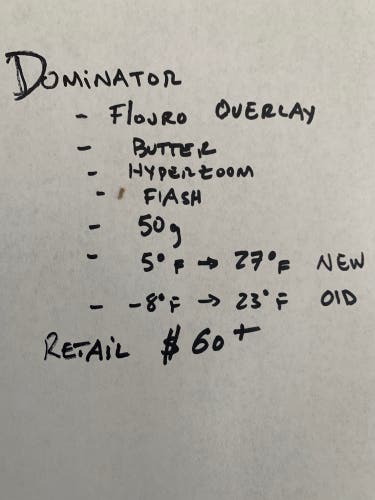 DOMINATOR
- FlOURO OVERLAY
- BUTTER
- HYPERZOOM
- FlASH
- 50g
- 5°F → 27°F NEW
- -8°F → 23°F OlD
RETAIL $60+